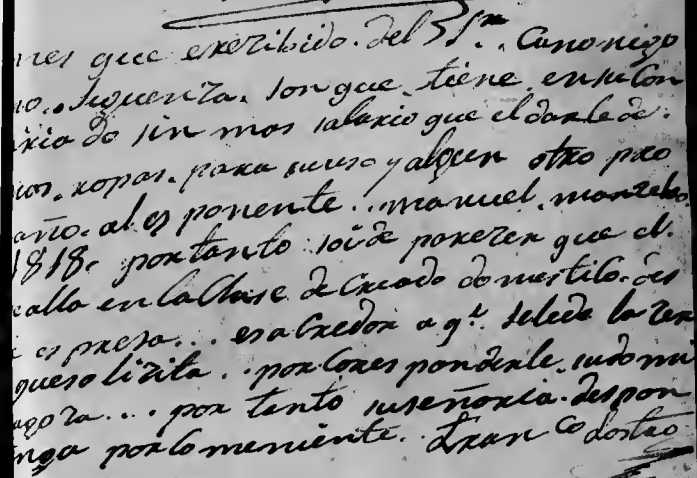 nes que exeribido. del Sr. Canonigo
no. siguenza. son que tiene en su Con
ixia do sin mas salario que el darle de.
nos. ropas. para su uso y algun otro pro
año. al esponente.. manuel. manzebo.
1818. por tanto soi de parezer que el.
calla en la Clase de Criado domestico. des
espresa... es aCredor a qe. sele de la zer
que solizita.. por Corresponderle su domi
agoza... por tanto su señoria. dispon
nga por Comeniente. Franco dostro